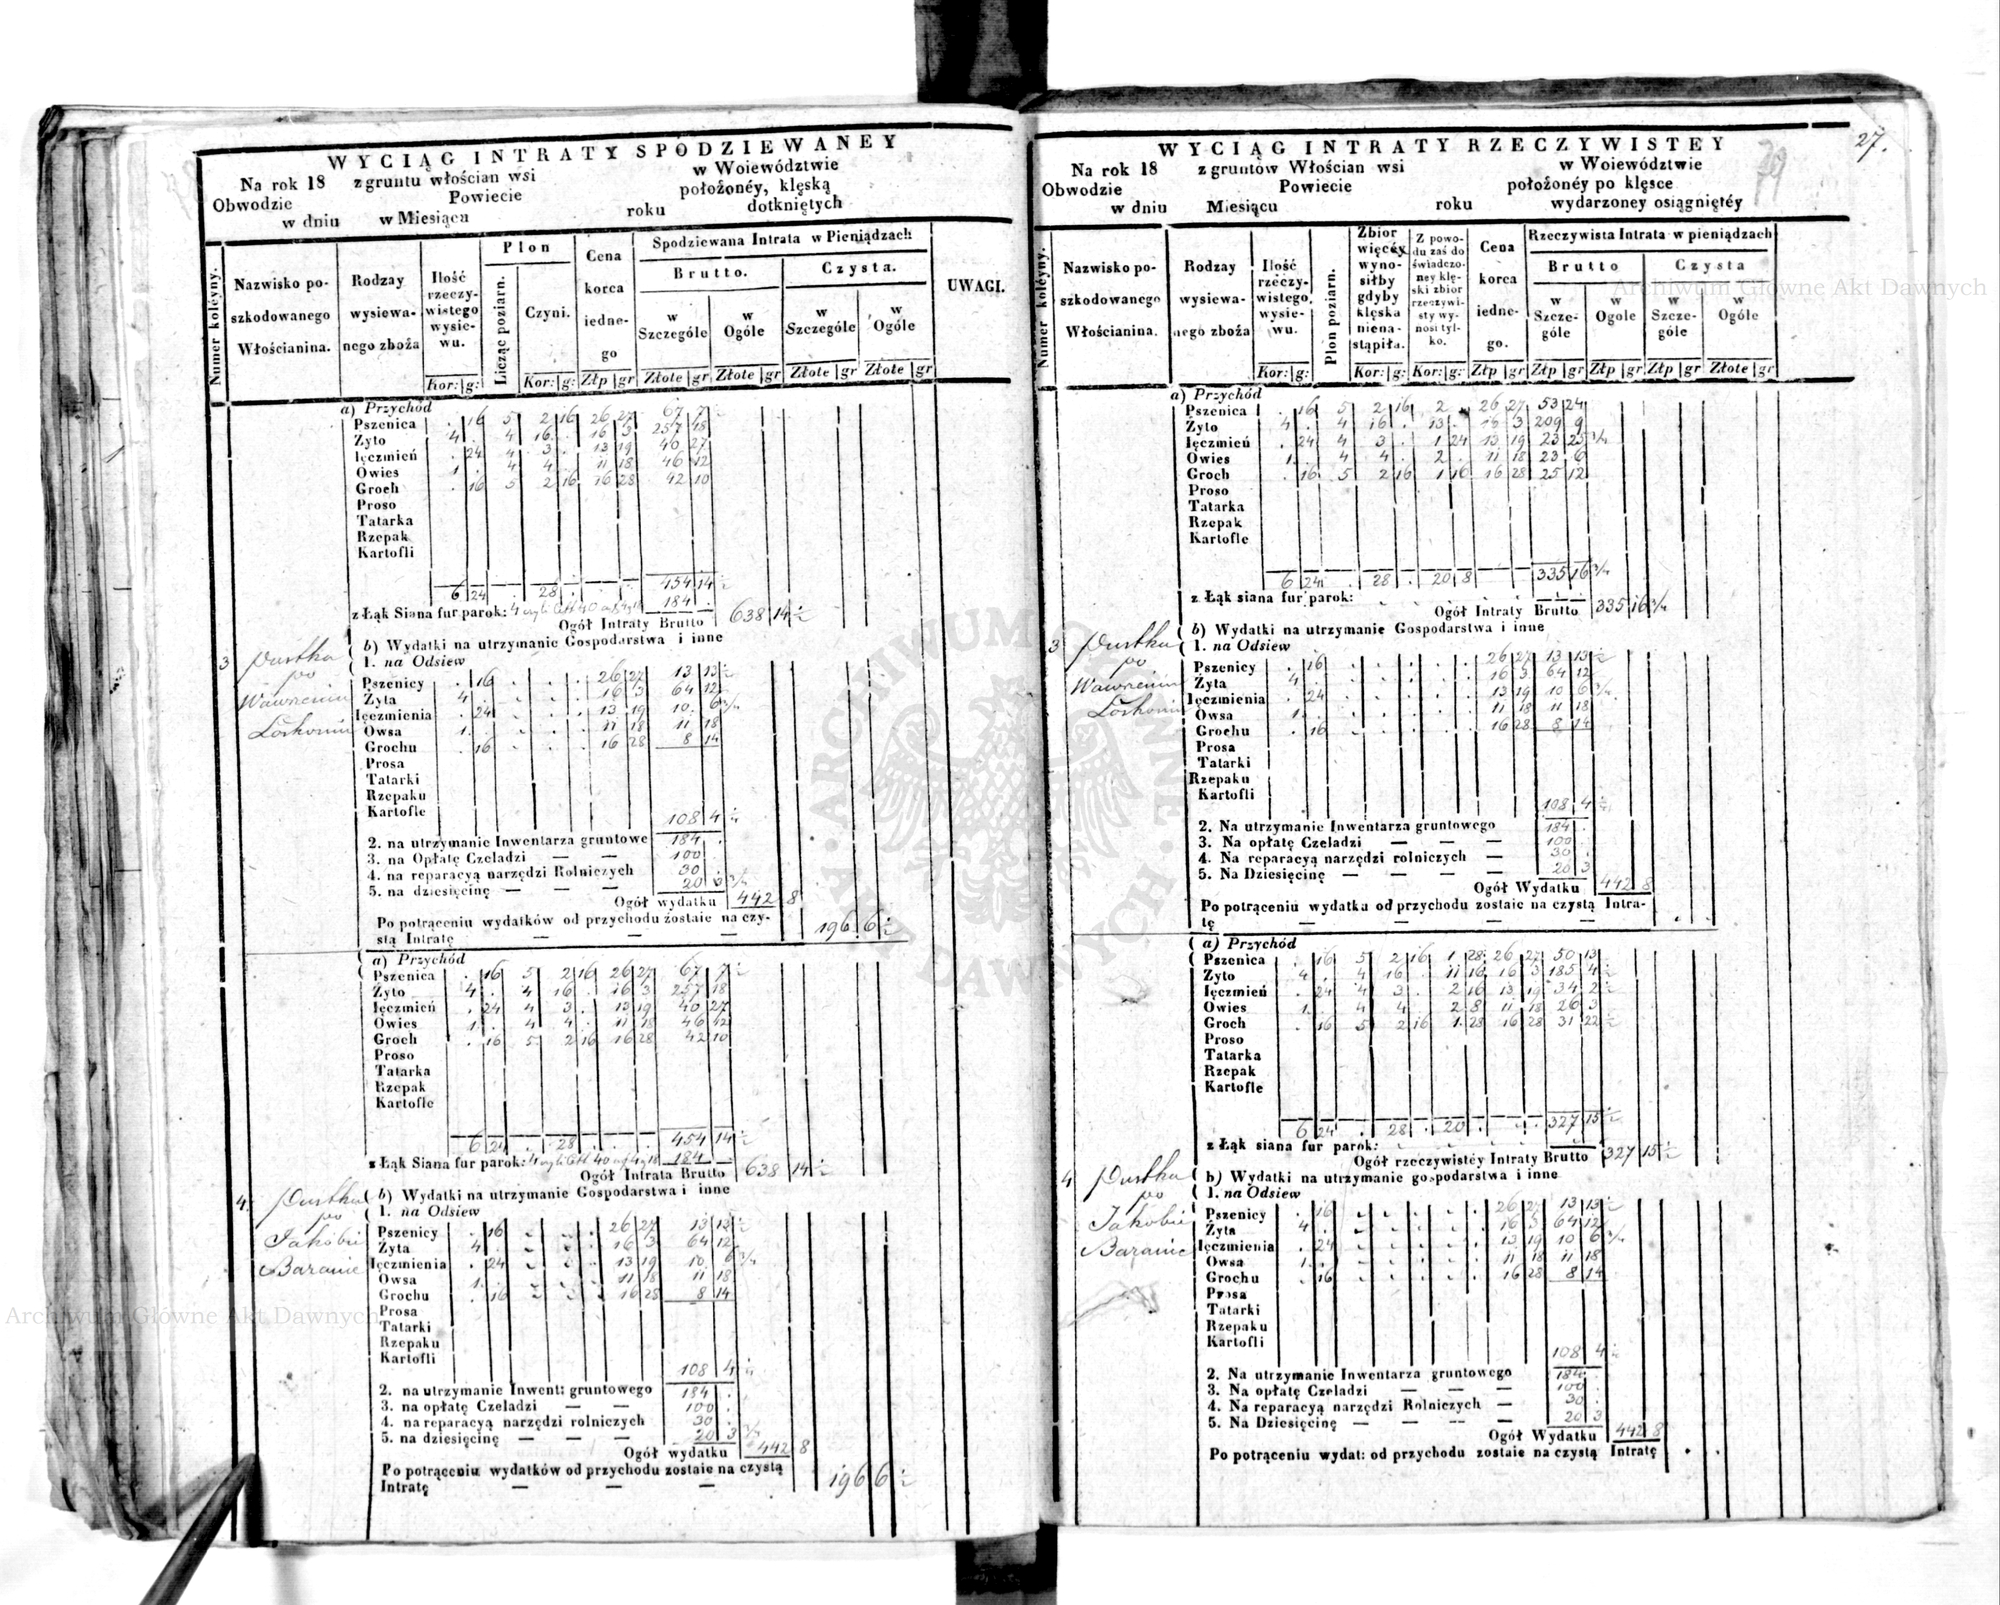 WYCIĄG INTRATY SPODZIEWANEY
Na rok 18 z gruntu włościan wsi w Woiewództwie
Obwodzie Powiecie położonéy, klęską
w dniu w Miesiącu roku dotkniętych
Numer kolèyny.
Nazwisko poszkodowanego Włościanina.
Rodzay wysiewanego zboża
Ilość rzeczywistego wysiewu.
Plon
Licząc poziarn.
Czyni.
Cena korca iednego
Spodziewana Intrata w Pieniądzach
Brutto. Czysta.
w Szczególe w Ogóle w Szczególe w Ogóle
UWAGI.
Kor: g: Kor: g: Złp gr Złote gr Złote gr Złote gr Złote gr
a) Przychód
Pszenica . 16 5 2 16 26 27 67 7
Żyto 4 . 4 16 . 16 3 257 18
Ięczmień . 24 4 3 . 13 19 40 27
Owies 1 . 4 4 . 11 18 46 12
Groch . 16 5 2 16 16 28 42 10
Proso
Tatarka
Rzepak
Kartofli
6 24 . 28 . 454 14
z Łąk Siana fur parok: 4 184
Ogół Intraty Brutto 638 14
b) Wydatki na utrzymanie Gospodarstwa i inne
1. na Odsiew
3 Pustka po Wawrzeniu
Pszenicy . 16 26 27 13 13
Żyta 4 . 16 3 64 12
Ięczmienia . 24 13 19 10 6 3/4
Owsa 1 . 11 18 11 18
Grochu . 16 16 28 8 14
Prosa
Tatarki
Rzepaku
Kartofle
108 4
2. na utrzymanie Inwentarza gruntowe 184 .
3. na Opłatę Czeladzi — — 100
4. na reparacyą narzędzi Rolniczych 30
5. na dziesięcinę — — — 20 3 3/4
Ogół wydatku 442 8
Po potrąceniu wydatków od przychodu zostaie na czy-
stą Intratę — — — 196 6
a) Przychód
Pszenica . 16 5 2 16 26 27 67 7
Żyto 4 . 4 16 . 16 3 257 18
Ięczmień . 24 4 3 . 13 19 40 27
Owies 1 . 4 4 . 11 18 46 12
Groch . 16 5 2 16 16 28 42 10
Proso
Tatarka
Rzepak
Kartofle
6 24 . 28 . 454 14
z Łąk Siana fur parok: 4 184
Ogół Intrata Brutto 638 14
b) Wydatki na utrzymanie Gospodarstwa i inne
1. na Odsiew
4. Pustka po Jakóbie Baranie
Pszenicy . 16 26 27 13 13
Żyta 4 . 16 3 64 12
Ięczmienia . 24 13 19 10 6 3/4
Owsa 1 . 11 18 11 18
Grochu . 16 16 28 8 14
Prosa
Tatarki
Rzepaku
Kartofli
108 4
2. na utrzymanie Inwent: gruntowego 184 .
3. na opłatę Czeladzi — — 100 .
4. na reparacyą narzędzi rolniczych 30 .
5. na dziesięcinę — — — 20 3 3/4
Ogół wydatku 442 8
Po potrąceniu wydatków od przychodu zostaie na czystą
Intratę — — — 196 6
27.
79
WYCIĄG INTRATY RZECZYWISTEY
Na rok 18 z gruntów Włościan wsi w Woiewództwie
Obwodzie Powiecie położonéy po klęsce
w dniu Miesiącu roku wydarzoney osiągniętéy
Numer kolèyny.
Nazwisko poszkodowanego Włościanina.
Rodzay wysiewanego zboża
Ilość rzeczywistego wysiewu.
Plon poziarn.
Zbior więcéy wynosiłby gdyby klęska nienastąpiła.
Z powodu zaś doświadczoney klęski zbior rzeczywisty wynosi tylko.
Cena korca iednego.
Rzeczywista Intrata w pieniądzach
Brutto Czysta
w Szczególe w Ogole w Szczególe w Ogóle
Kor: g: Kor: g: Kor: g: Złp gr Złp gr Złp gr Złp gr Złote gr
a) Przychód
Pszenica . 16 5 2 16 2 . 26 27 53 24
Żyto 4 . 4 16 . 13 . 16 3 209 9
Ięczmień . 24 4 3 . 1 24 13 19 23 25 3/4
Owies 1 . 4 4 . 2 . 11 18 23 6
Groch . 16 5 2 16 1 16 16 28 25 12
Proso
Tatarka
Rzepak
Kartofle
6 24 . 28 . 20 8 335 16 3/4
z Łąk siana fur parok:
Ogół Intraty Brutto 335 16 3/4
b) Wydatki na utrzymanie Gospodarstwa i inne
1. na Odsiew
3 Pustka po Wawrzeniu
Pszenicy . 16 26 27 13 13
Żyta 4 . 16 3 64 12
Ięczmienia . 24 13 19 10 6 3/4
Owsa 1 . 11 18 11 18
Grochu . 16 16 28 8 14
Prosa
Tatarki
Rzepaku
Kartofli
108 4
2. Na utrzymanie Inwentarza gruntowego 184 .
3. Na opłatę Czeladzi — — — 100 .
4. Na reparacyą narzędzi rolniczych — 30 .
5. Na Dziesięcinę — — — — 20 3
Ogół Wydatku 442 8
Po potrąceniu wydatku od przychodu zostaie na czystą Intra-
tę — — —
a) Przychód
Pszenica . 16 5 2 16 1 28 26 27 50 13
Żyto 4 . 4 16 . 11 16 16 3 185 4
Ięczmień . 24 4 3 . 2 16 13 19 34 2
Owies 1 . 4 4 . 2 8 11 18 26 3
Groch . 16 5 2 16 1 28 16 28 31 22
Proso
Tatarka
Rzepak
Kartofle
6 24 . 28 . 20 . 327 15
z Łąk siana fur parok:
Ogół rzeczywistéy Intraty Brutto 327 15
b) Wydatki na utrzymanie gospodarstwa i inne
1. na Odsiew
4 Pustka po Jakóbie Baranie
Pszenicy . 16 26 27 13 13
Żyta 4 . 16 3 64 12
Ięczmienia . 24 13 19 10 6 3/4
Owsa 1 . 11 18 11 18
Grochu . 16 16 28 8 14
Prosa
Tatarki
Rzepaku
Kartofli
108 4
2. Na utrzymanie Inwentarza gruntowego 184 .
3. Na opłatę Czeladzi — — — 100 .
4. Na reparacyą narzędzi Rolniczych — 30 .
5. Na Dziesięcinę — — — — 20 3
Ogół Wydatku 442 8
Po potrąceniu wydat: od przychodu zostaie na czystą Intratę
ARCHIWUM GŁÓWNE AKT DAWNYCH
Archiwum Główne Akt Dawnych
Archiwum Główne Akt Dawnych